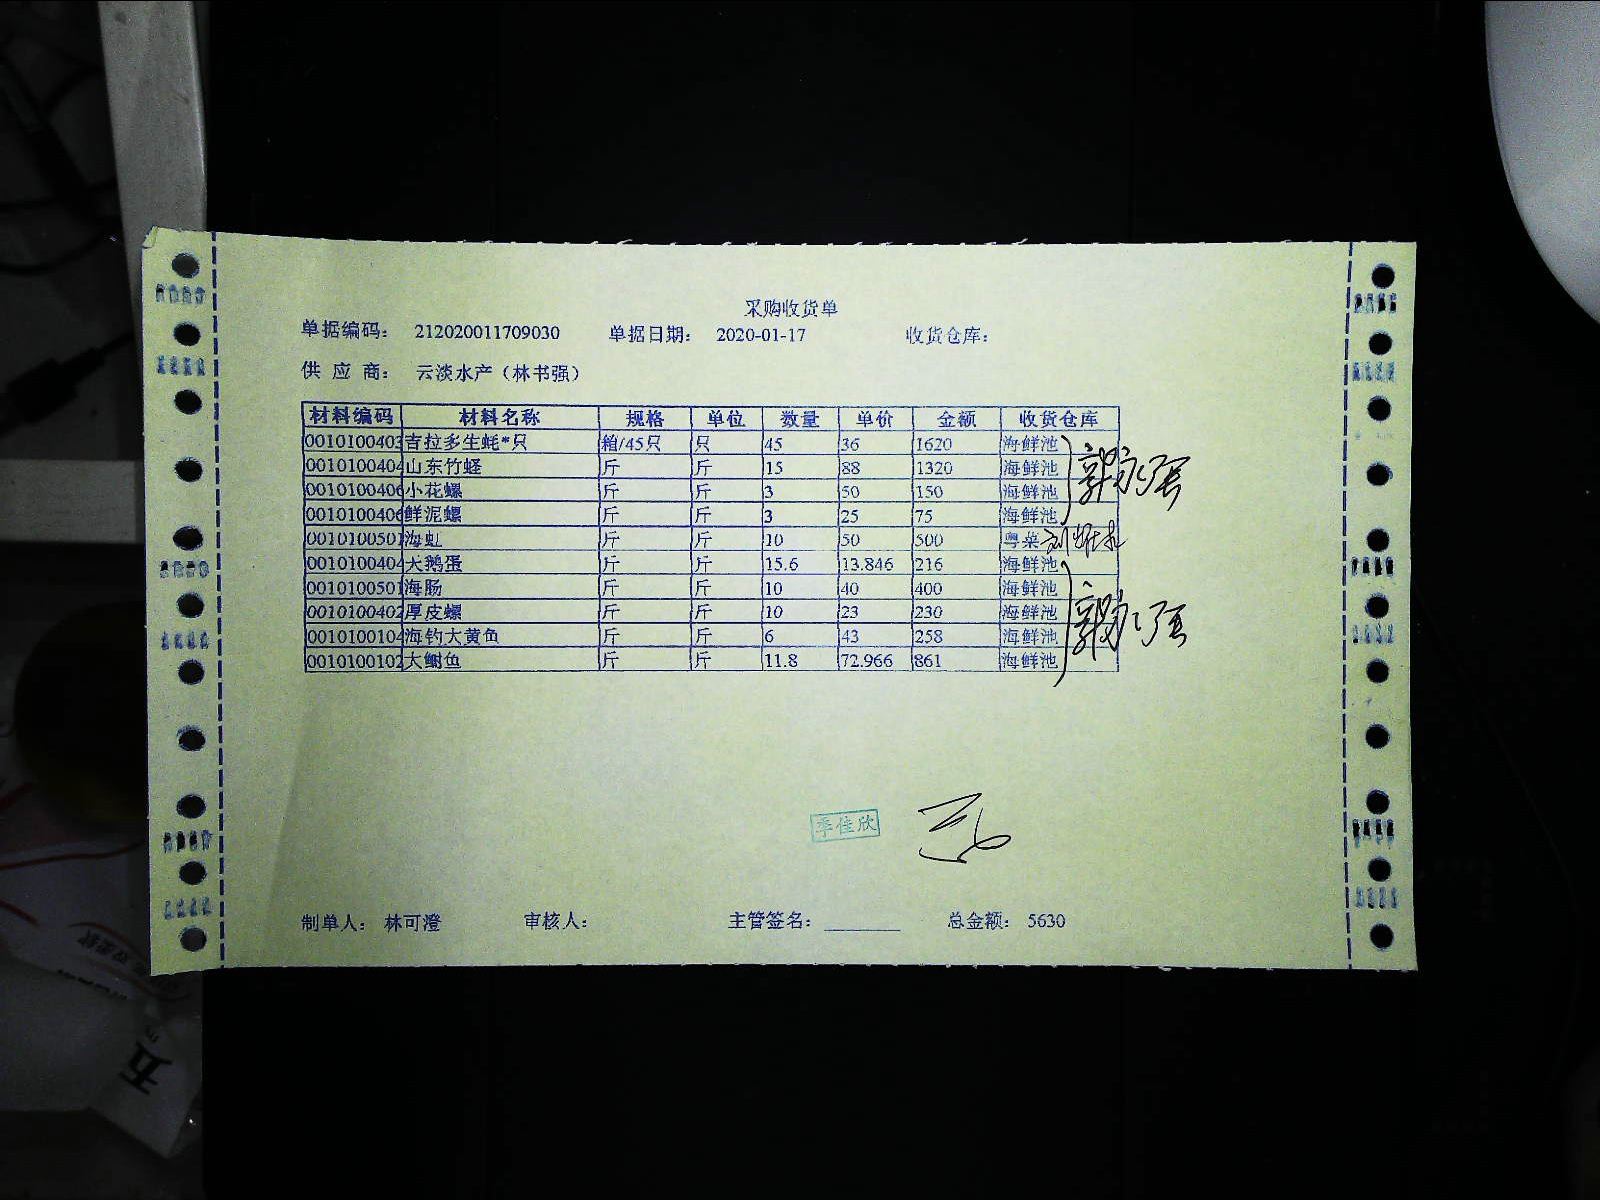 采购收货单
单据编码： 212020011709030 单据日期： 2020-01-17 收货仓库：
供 应 商： 云淡水产（林书强）
材料编码 材料名称 规格 单位 数量 单价 金额 收货仓库
0010100403 吉拉多生蚝*只 箱/45只 只 45 36 1620 海鲜池
0010100404 山东竹蛏 斤 斤 15 88 1320 海鲜池
0010100406 小花螺 斤 斤 3 50 150 海鲜池
0010100406 鲜泥螺 斤 斤 3 25 75 海鲜池
0010100501 海虹 斤 斤 10 50 500 粤菜
0010100404 大鹅蛋 斤 斤 15.6 13.846 216 海鲜池
0010100501 海肠 斤 斤 10 40 400 海鲜池
0010100402 厚皮螺 斤 斤 10 23 230 海鲜池
0010100104 海钓大黄鱼 斤 斤 6 43 258 海鲜池
0010100102 大鲥鱼 斤 斤 11.8 72.966 861 海鲜池
季佳欣
制单人： 林可澄 审核人： 主管签名： 总金额： 5630
五